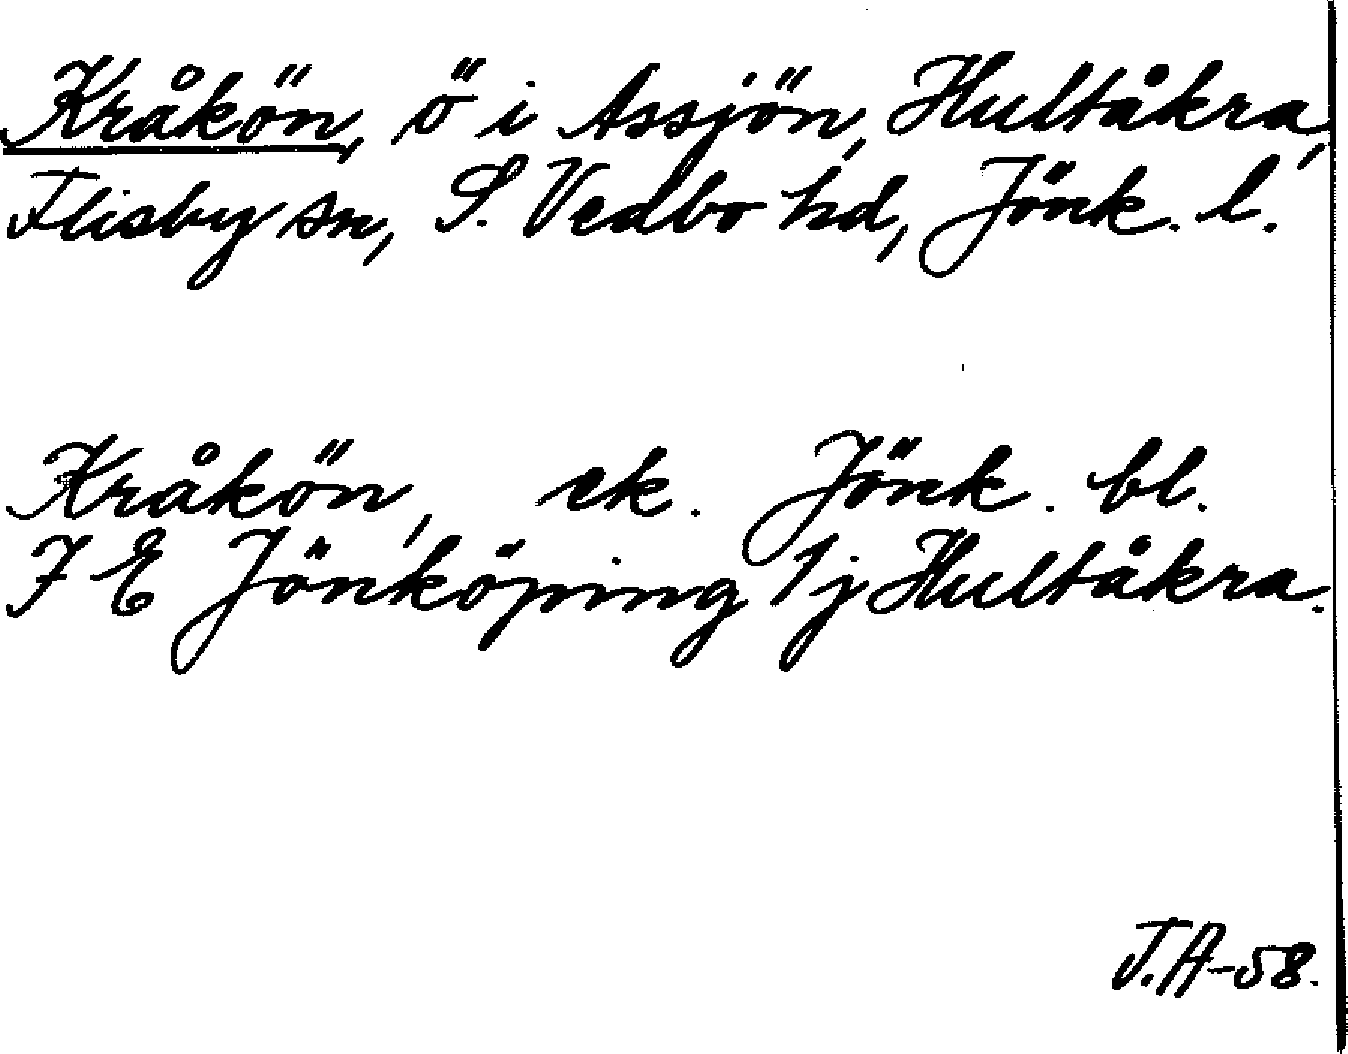 Kråkön, ö i Assjön, Hultåkra,
Flisby sn, S. Vedbo hd, Jönk. l.
Kråkön, ek. Jönk. bl.
7 E Jönköping 1j Hultåkra.
J.A-58.